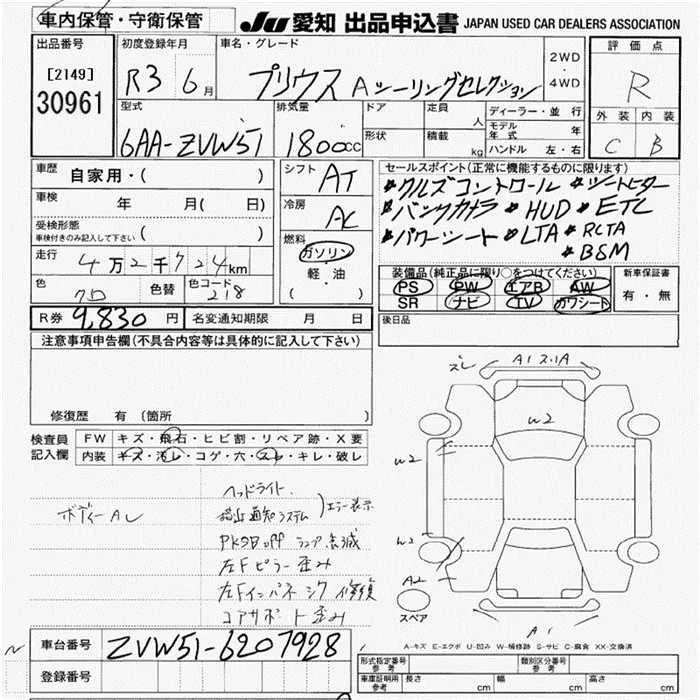 車内保管・守衛保管
JU 愛知 出品申込書 JAPAN USED CAR DEALERS ASSOCIATION
出品番号
[2149]
30961
初度登録年月
R3 6月
車名・グレード
プリウス Aツーリングセレクション
2WD
・
4WD
評価点
R
外装 内装
C B
型式
6AA-ZVW51
排気量
1800cc
ドア
形状
定員 人
積載 kg
ディーラー・並行
モデル年式 年
ハンドル 左・右
車歴
自家用・( )
車検 年 月( 日)
受検形態
車検付きのみ記入して下さい ( )
走行
4万2千724km
色 色替 色コード
218
シフト
AT
冷房
AC
燃料
ガソリン
・
軽・油
( )
セールスポイント(正常に機能するものに限ります)
クルズコントロール シートヒター
バックカメラ HUD ETC
パワーシート LTA RCTA
BSM
装備品(純正品に限り○をつけてください)
PS PW エアB AW
SR ナビ TV カワシート
新車保証書
有・無
R券 9,830円 名変通知期限 月 日
後日品
注意事項申告欄(不具合内容等は具体的に記入して下さい)
修復歴 有(箇所 )
検査員記入欄
FW キズ・飛石・ヒビ割・リペア跡・X要
内装 キズ・汚レ・コゲ・穴・スレ・キレ・破レ
ヘッドライト
ボディーAし
接近通知システム )エラー表示
PKSB off ランプ点滅
左Fピラー歪み
左Fインパネ シワ 修復
コアサポート歪み
ズレ A1 ズレ1A
W2
W2
W2
A2
スペア
A1
A-キズ E-エクボ U-凹み W-補修跡 S-サビ C-腐食 XX-交換済
車台番号 ZVW51-6207928
登録番号
形式指定番号 参考
類別区分番号 参考
車庫証明用 参考 長さ cm 幅 cm 高さ cm